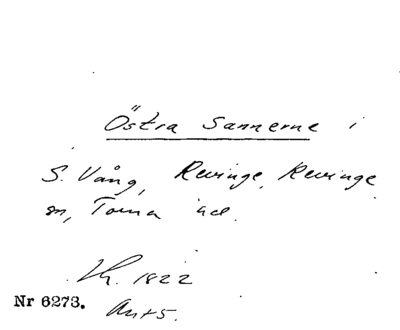 Östra Sannerne i
S. Vång, Revinge, Revinge
sn, Torna hd.
1822
Nr 6273.